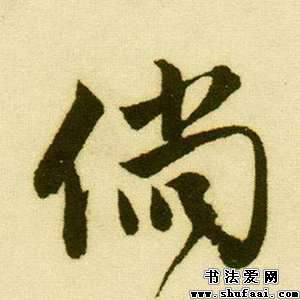 倘
书法爱网
www.shufaai.com